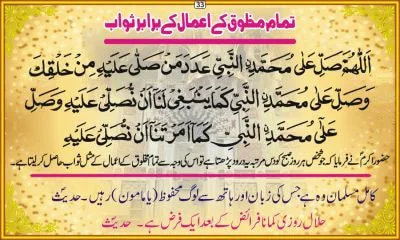 33
تمام مخلوق کے اعمال کے برابر ثواب
اَللّٰهُمَّ صَلِّ عَلٰى مُحَمَّدِنِ النَّبِيِّ عَدَدَ مَنْ صَلّٰى عَلَيْهِ مِنْ خَلْقِكَ
وَصَلِّ عَلٰى مُحَمَّدِنِ النَّبِيِّ كَمَا يَنْبَغِىْ لَنَا اَنْ نُصَلِّىَ عَلَيْهِ وَصَلِّ
عَلٰى مُحَمَّدِنِ النَّبِيِّ كَمَا اَمَرْتَنَا اَنْ نُصَلِّىَ عَلَيْهِ
حضور اکرمؐ نے فرمایا کہ جو شخص ہر روز صبح کو دس مرتبہ یہ درود پڑھتا ہے تو اس کی وجہ سے تمام مخلوق کے اعمال کے مثل ثواب حاصل کر لیتا ہے۔
کامل مسلمان وہ ہے جس کی زبان اور ہاتھ سے لوگ محفوظ (یا مامون) رہیں۔ حدیث
حلال روزی کمانا فرائض کے بعد ایک فرض ہے۔ حدیث